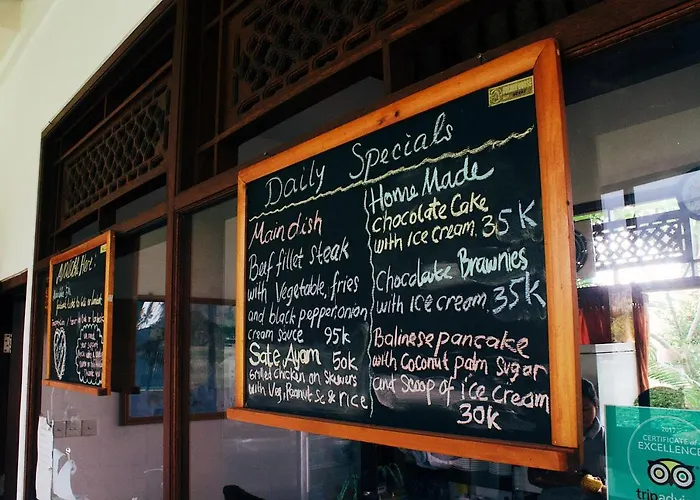 Daily Specials
Main dish
Beef fillet steak
with Vegetable, fries
and black pepper onion
cream sauce 95k
Sate Ayam 50k
Grilled chicken on skewers
with Veg, Peanut Sc & rice
Home Made
Chocolate Cake
with Ice cream. 35K
Chocolate Brawnies
with ice cream. 35k
Balinese pancake
with Coconut palm Sugar
and Scoop of ice cream
30k
2017
CERTIFICATE of
EXCELLENCE
tripadvi